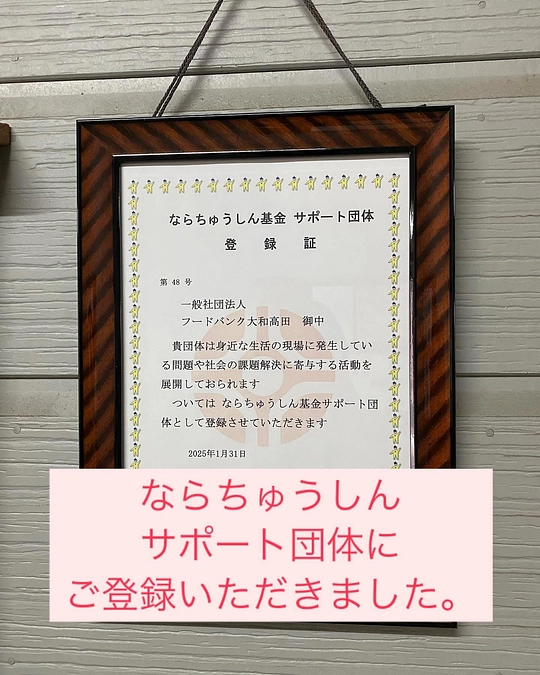 ならちゅうしん基金 サポート団体
登 録 証
第 48 号
一般社団法人
フードバンク大和高田 御中
貴団体は身近な生活の現場に発生してい
る問題や社会の課題解決に寄与する活動を
展開しておられます
ついては ならちゅうしん基金サポート団
体として登録させていただきます
2025年1月31日
ならちゅうしん
サポート団体に
ご登録いただきました。